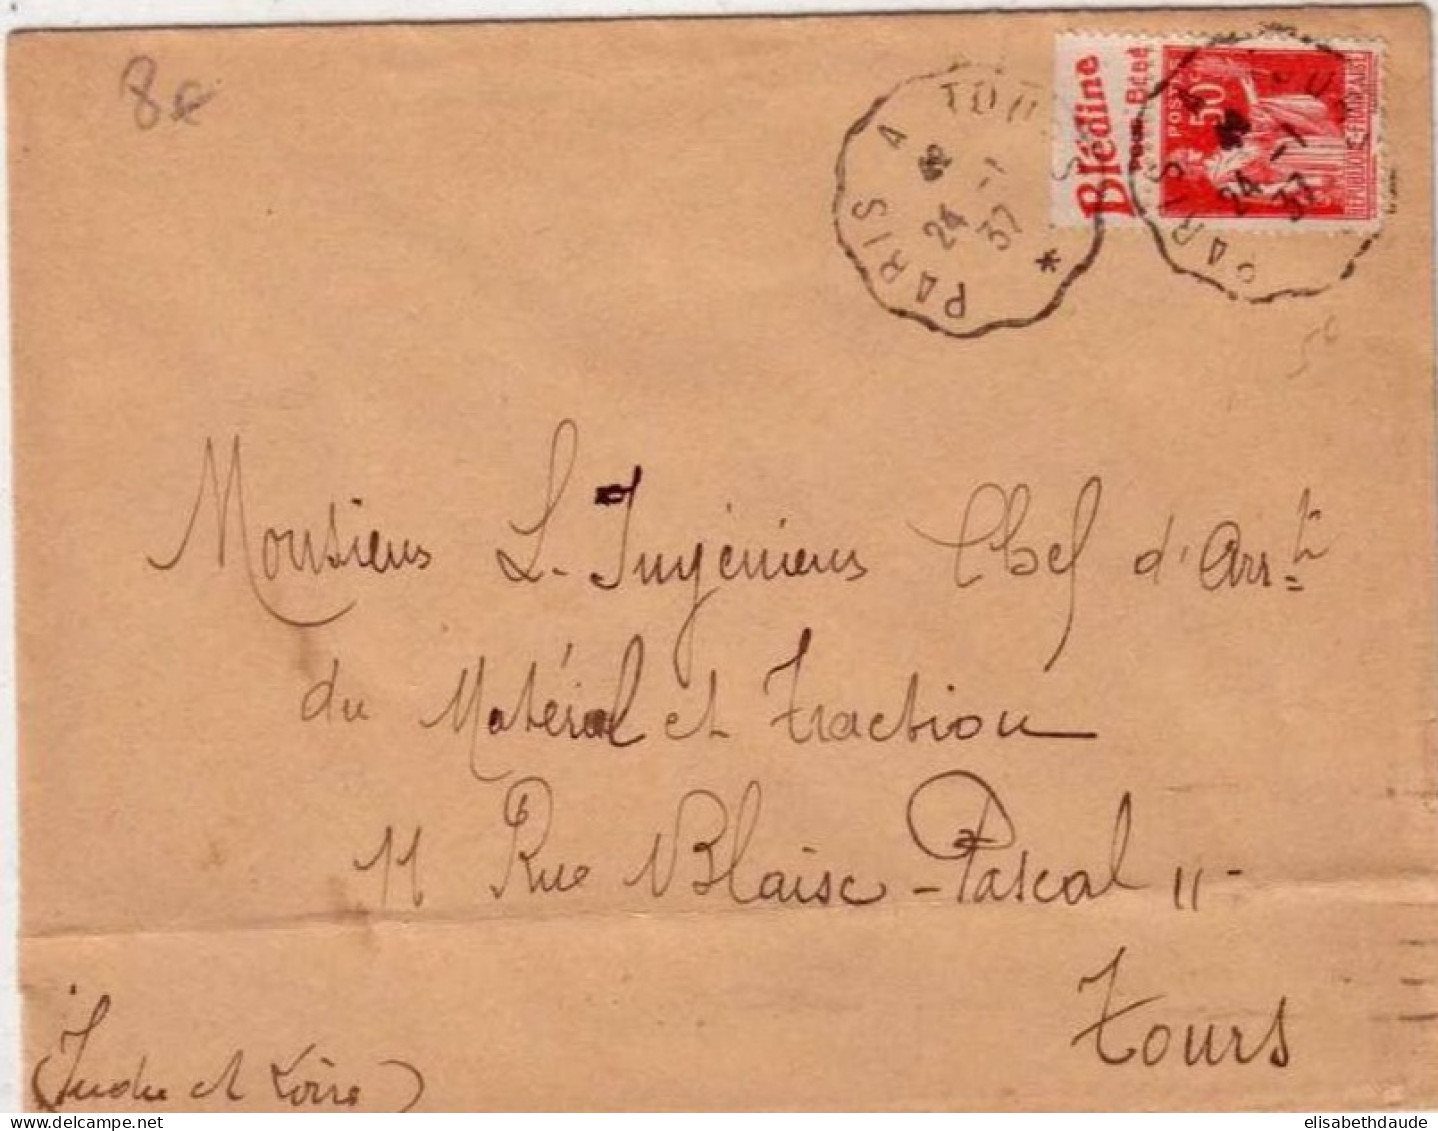 8e
PARIS A TOURS *
24 -1
37
Blédine
POUR BÉBÉ
POSTES
50
REPUBLIQUE-FRANCAISE
PARIS A TOURS
24 -1
37
5e
Monsieur L'Ingénieur Chef d'Arrt
du Matériel et Traction
11 Rue Blaise-Pascal 11-
Tours
(Indre et Loire)
elisabethdaude